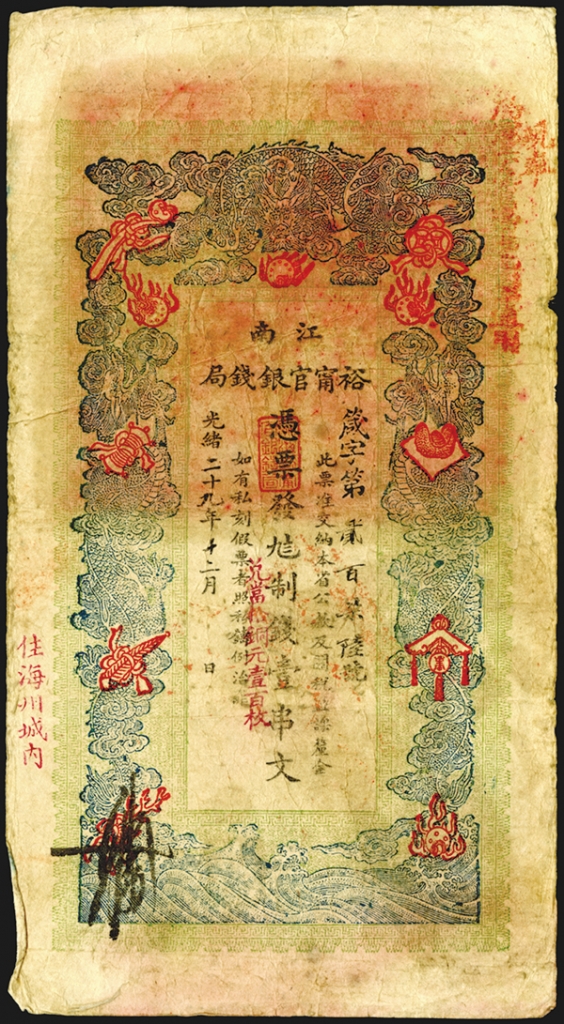 江南
裕甯官銀錢局
箴字第貳百柒陸號
此票准交納本省公款及關稅鹽課釐金
憑票發九制錢壹串文
兌當拾銅元壹百枚
如有私刻假票者照私鑄例治罪
光緒二十九年十二月 日
住海州城內